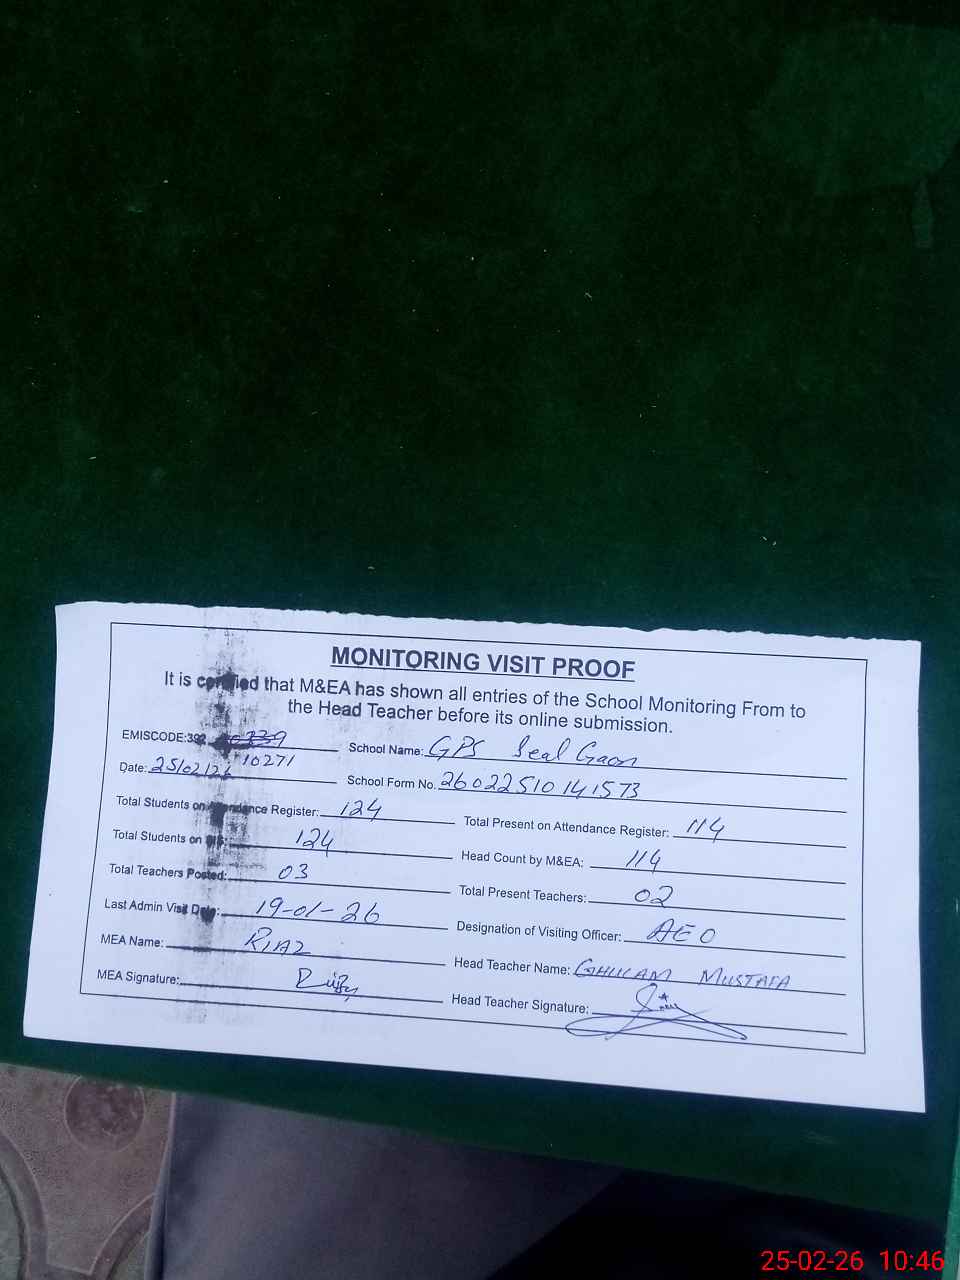 MONITORING VISIT PROOF
It is certified that M&EA has shown all entries of the School Monitoring From to
the Head Teacher before its online submission.
EMISCODE:392 School Name: GPS Seal Gaon
10271
Date: 25/02/26 School Form No. 26022510141573
Total Students on Attendance Register: 124 Total Present on Attendance Register: 114
Total Students on 124 Head Count by M&EA: 114
Total Teachers Posted: 03 Total Present Teachers: 02
Last Admin Visit Date: 19-01-26 Designation of Visiting Officer: AEO
MEA Name: RIAZ Head Teacher Name: GHULAM MUSTAFA
MEA Signature: Head Teacher Signature:
25-02-26 10:46